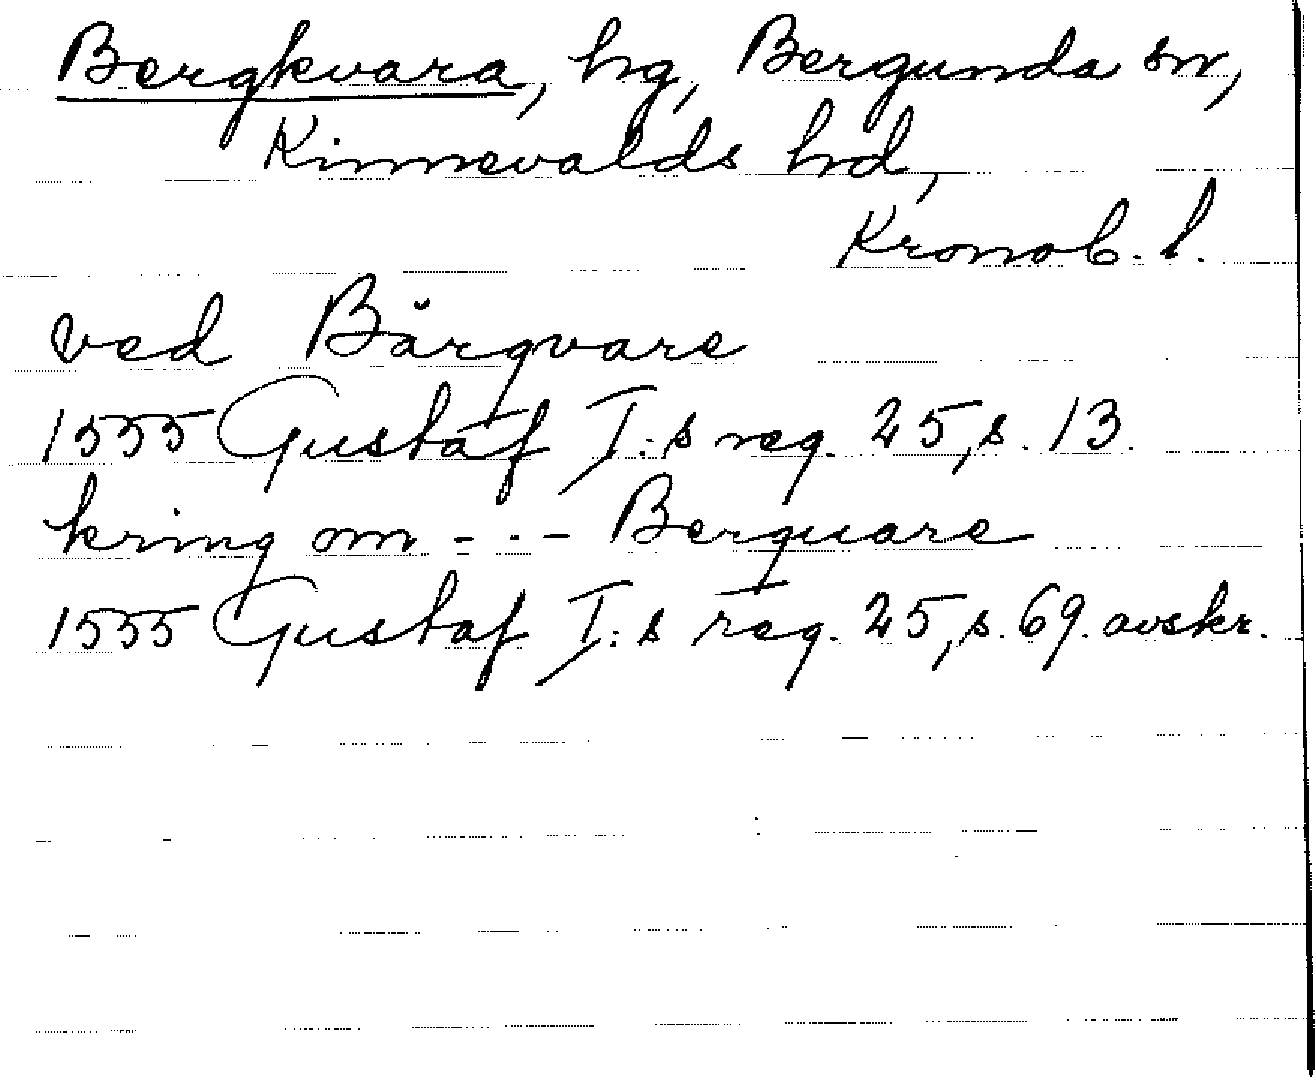 Bergkvara, hg, Bergunda sn,
Kinnevalds hd,
Kronob. l.
ved Bärqvare
1555 Gustaf I:s reg. 25, s. 13.
kring om - - - Berquare
1555 Gustaf I:s reg. 25, s. 69. avskr.